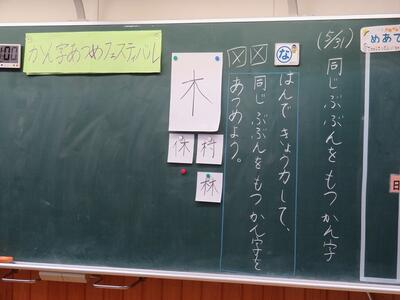 めあて
(5/31)
同じぶぶんをもつかん字
な
はんで きょう力して、
同じ ぶぶんを もつ かん字を
あつめよう。
かん字あつめフェスティバル
木
休
村
林
日